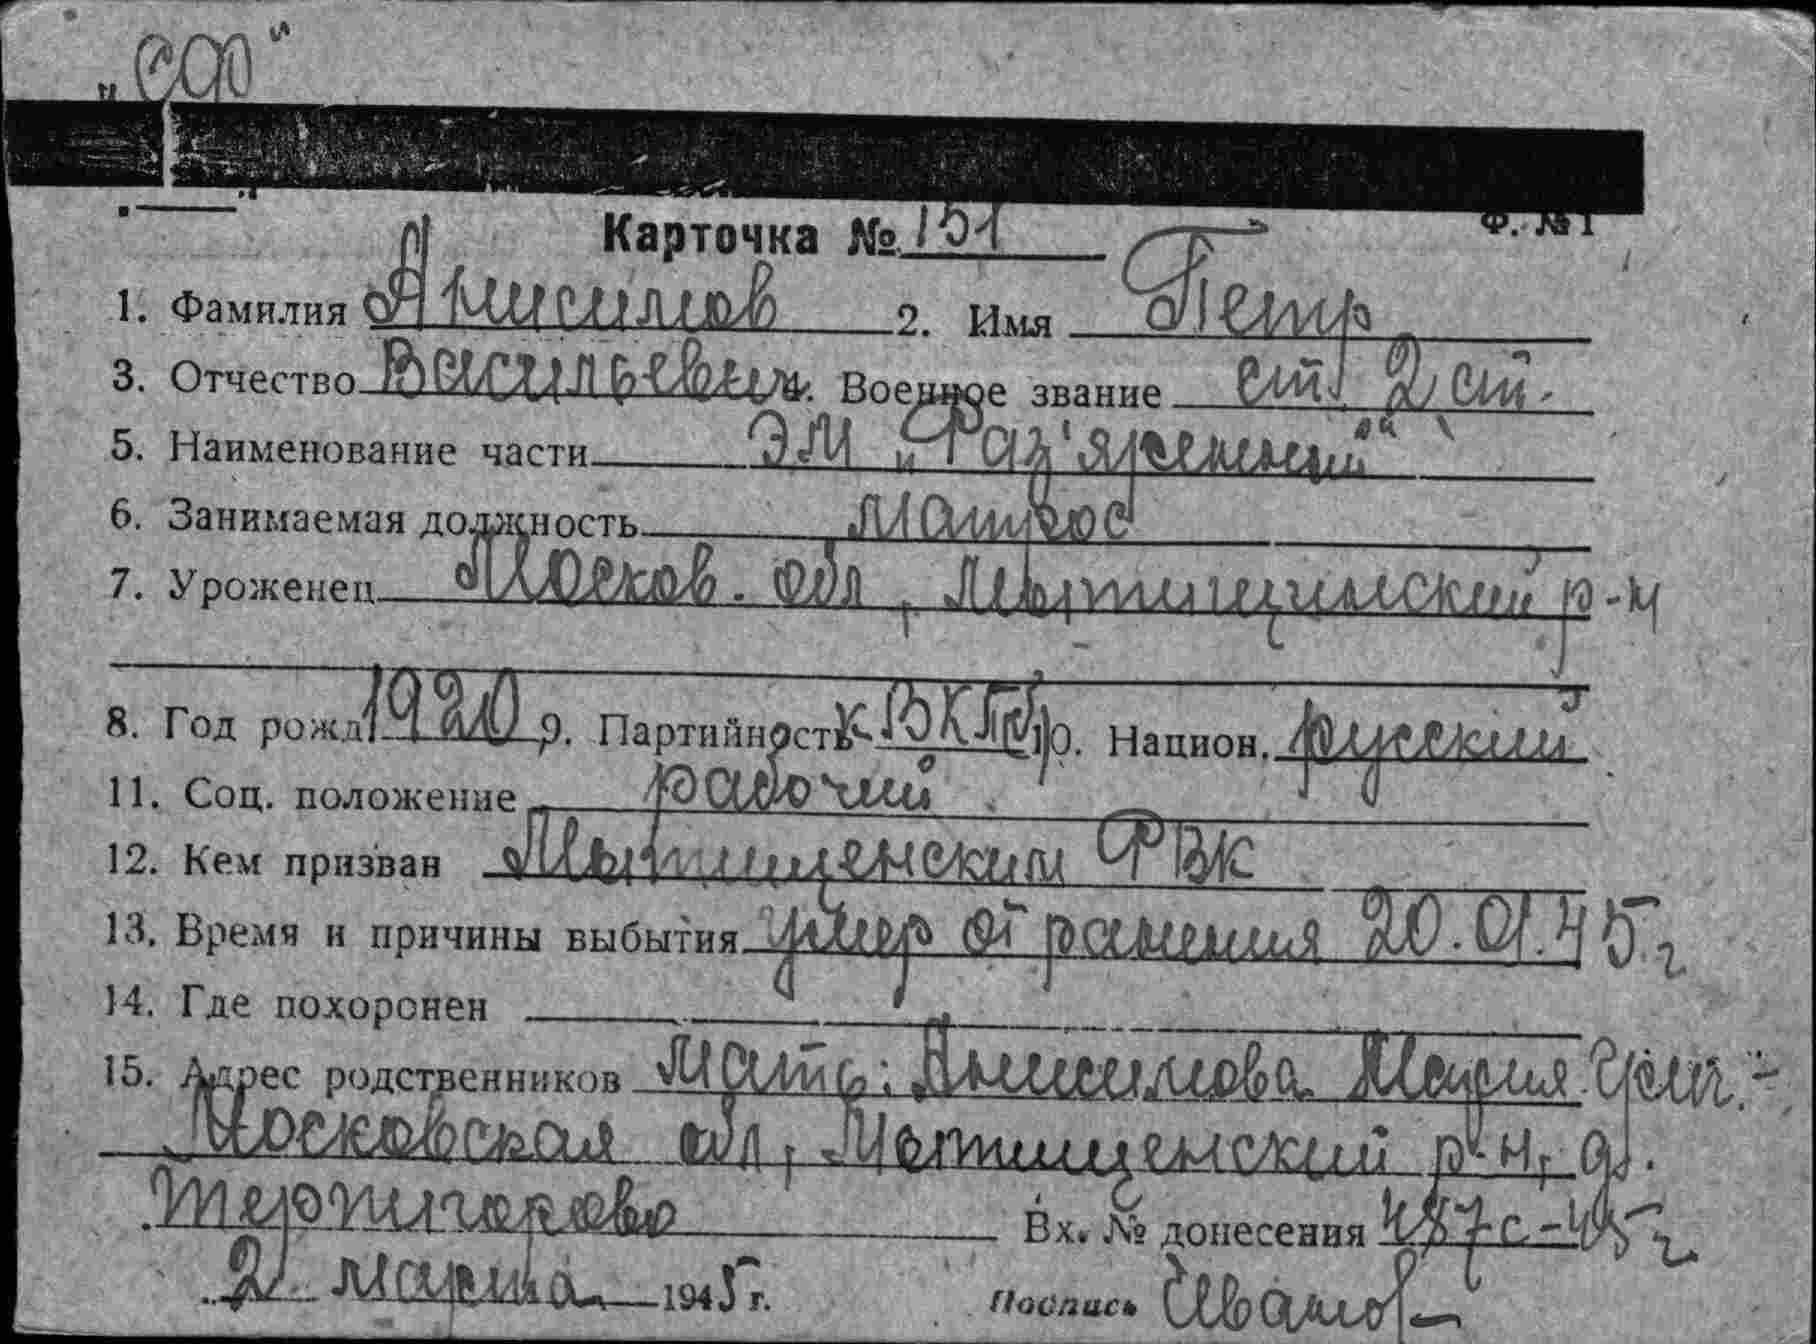 „СФ"
Карточка № 151 Ф. № 1
1. Фамилия Анисимов 2. Имя Петр
3. Отчество Васильевич 4. Военное звание ст. 2 ст.
5. Наименование части ЭМ „Раз'яренный"
6. Занимаемая должность матрос
7. Уроженец Москов. обл, Мытищинский р-н
8. Год рожд. 1920 9. Партийность к ВКПб 10. Национ. русский
11. Соц. положение рабочий
12. Кем призван Мытищенским РВК
13. Время и причины выбытия умер от ранения 20.01.45 г
14. Где похоронен
15. Адрес родственников мать: Анисимова Мария
Московская обл, Мытищенский р-н, д.
Терпигорово Вх. № донесения 487с-45 г.
2 марта 1945 г. Подпись Иванов